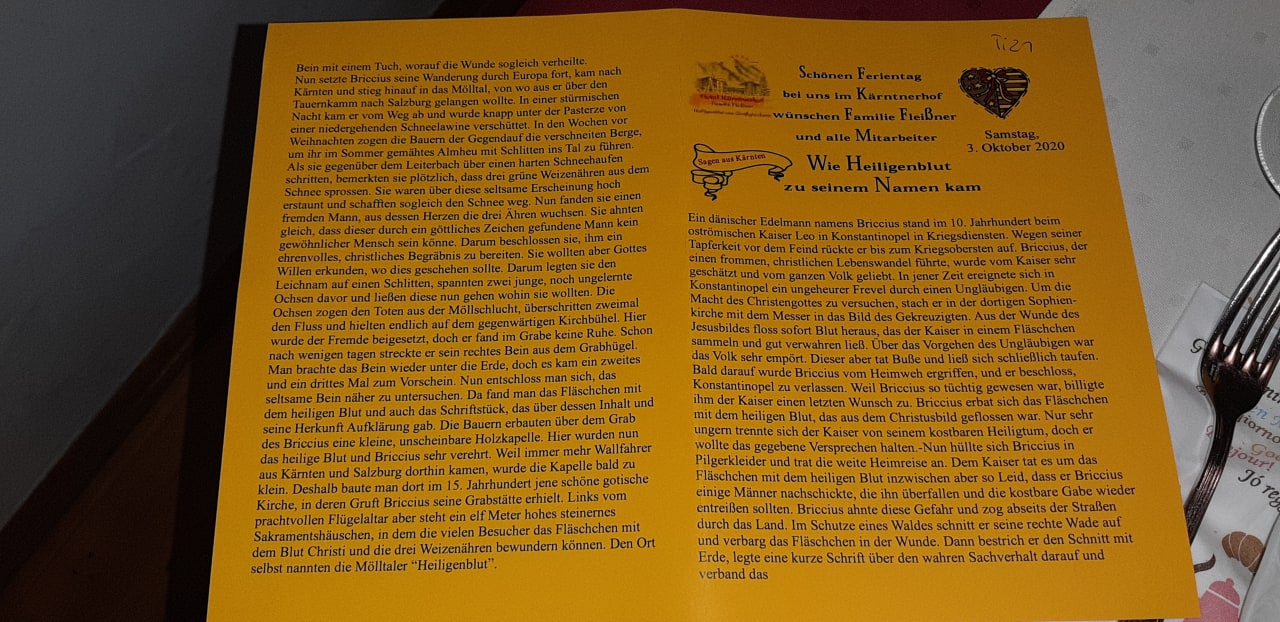 Bein mit einem Tuch, worauf die Wunde sogleich verheilte.
Nun setzte Briccius seine Wanderung durch Europa fort, kam nach
Kärnten und stieg hinauf in das Mölltal, von wo aus er über den
Tauernkamm nach Salzburg gelangen wollte. In einer stürmischen
Nacht kam er vom Weg ab und wurde knapp unter der Pasterze von
einer niedergehenden Schneelawine verschüttet. In den Wochen vor
Weihnachten zogen die Bauern der Gegendauf die verschneiten Berge,
um ihr im Sommer gemähtes Almheu mit Schlitten ins Tal zu führen.
Als sie gegenüber dem Leiterbach über einen harten Schneehaufen
schritten, bemerkten sie plötzlich, dass drei grüne Weizenähren aus dem
Schnee sprossen. Sie waren über diese seltsame Erscheinung hoch
erstaunt und schafften sogleich den Schnee weg. Nun fanden sie einen
fremden Mann, aus dessen Herzen die drei Ähren wuchsen. Sie ahnten
gleich, dass dieser durch ein göttliches Zeichen gefundene Mann kein
gewöhnlicher Mensch sein könne. Darum beschlossen sie, ihm ein
ehrenvolles, christliches Begräbnis zu bereiten. Sie wollten aber Gottes
Willen erkunden, wo dies geschehen sollte. Darum legten sie den
Leichnam auf einen Schlitten, spannten zwei junge, noch ungelernte
Ochsen davor und ließen diese nun gehen wohin sie wollten. Die
Ochsen zogen den Toten aus der Möllschlucht, überschritten zweimal
den Fluss und hielten endlich auf dem gegenwärtigen Kirchbühel. Hier
wurde der Fremde beigesetzt, doch er fand im Grabe keine Ruhe. Schon
nach wenigen tagen streckte er sein rechtes Bein aus dem Grabhügel.
Man brachte das Bein wieder unter die Erde, doch es kam ein zweites
und ein drittes Mal zum Vorschein. Nun entschloss man sich, das
seltsame Bein näher zu untersuchen. Da fand man das Fläschchen mit
dem heiligen Blut und auch das Schriftstück, das über dessen Inhalt und
seine Herkunft Aufklärung gab. Die Bauern erbauten über dem Grab
des Briccius eine kleine, unscheinbare Holzkapelle. Hier wurden nun
das heilige Blut und Briccius sehr verehrt. Weil immer mehr Wallfahrer
aus Kärnten und Salzburg dorthin kamen, wurde die Kapelle bald zu
klein. Deshalb baute man dort im 15. Jahrhundert jene schöne gotische
Kirche, in deren Gruft Briccius seine Grabstätte erhielt. Links vom
prachtvollen Flügelaltar aber steht ein elf Meter hohes steinernes
Sakramentshäuschen, in dem die vielen Besucher das Fläschchen mit
dem Blut Christi und die drei Weizenähren bewundern können. Den Ort
selbst nannten die Mölltaler “Heiligenblut”.
Ti21
Schönen Ferientag
bei uns im Kärntnerhof
wünschen Familie Fleißner
und alle Mitarbeiter
Samstag,
3. Oktober 2020
Sagen aus Kärnten
Wie Heiligenblut
zu seinem Namen kam
Ein dänischer Edelmann namens Briccius stand im 10. Jahrhundert beim
oströmischen Kaiser Leo in Konstantinopel in Kriegsdiensten. Wegen seiner
Tapferkeit vor dem Feind rückte er bis zum Kriegsobersten auf. Briccius, der
einen frommen, christlichen Lebenswandel führte, wurde vom Kaiser sehr
geschätzt und vom ganzen Volk geliebt. In jener Zeit ereignete sich in
Konstantinopel ein ungeheurer Frevel durch einen Ungläubigen. Um die
Macht des Christengottes zu versuchen, stach er in der dortigen Sophien-
kirche mit dem Messer in das Bild des Gekreuzigten. Aus der Wunde des
Jesusbildes floss sofort Blut heraus, das der Kaiser in einem Fläschchen
sammeln und gut verwahren ließ. Über das Vorgehen des Ungläubigen war
das Volk sehr empört. Dieser aber tat Buße und ließ sich schließlich taufen.
Bald darauf wurde Briccius vom Heimweh ergriffen, und er beschloss,
Konstantinopel zu verlassen. Weil Briccius so tüchtig gewesen war, billigte
ihm der Kaiser einen letzten Wunsch zu. Briccius erbat sich das Fläschchen
mit dem heiligen Blut, das aus dem Christusbild geflossen war. Nur sehr
ungern trennte sich der Kaiser von seinem kostbaren Heiligtum, doch er
wollte das gegebene Versprechen halten.-Nun hüllte sich Briccius in
Pilgerkleider und trat die weite Heimreise an. Dem Kaiser tat es um das
Fläschchen mit dem heiligen Blut inzwischen aber so Leid, dass er Briccius
einige Männer nachschickte, die ihn überfallen und die kostbare Gabe wieder
entreißen sollten. Briccius ahnte diese Gefahr und zog abseits der Straßen
durch das Land. Im Schutze eines Waldes schnitt er seine rechte Wade auf
und verbarg das Fläschchen in der Wunde. Dann bestrich er den Schnitt mit
Erde, legte eine kurze Schrift über den wahren Sachverhalt darauf und
verband das